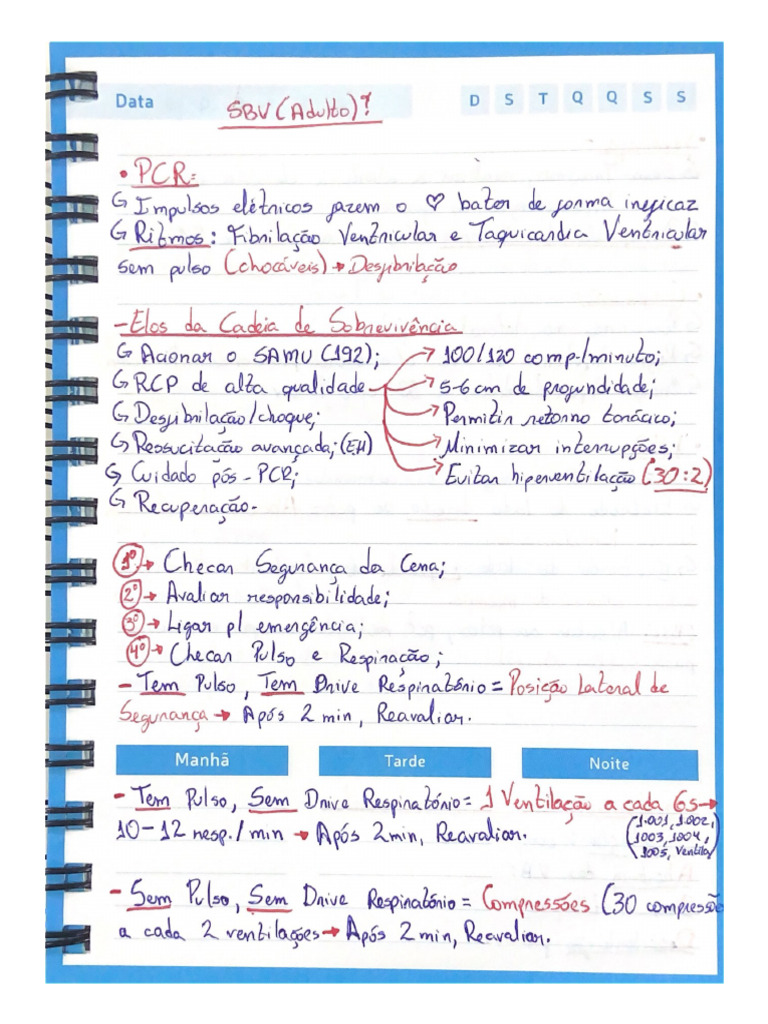 Data SBV (Adulto)? D S T Q Q S S
• PCR:
↳ Impulsos elétricos fazem o ♡ bater de forma ineficaz
↳ Ritmos: Fibrilação Ventricular e Taquicardia Ventricular
sem pulso (chocáveis) → Desfibrilação
- Elos da Cadeia de Sobrevivência
↳ Acionar o SAMU (192); → 100/120 comp/minuto;
↳ RCP de alta qualidade → 5-6 cm de profundidade;
↳ Desfibrilação/choque; → Permitir retorno torácico;
↳ Ressucitação avançada; (EH) → Minimizar interrupções;
↳ Cuidado pós-PCR; → Evitar hiperventilação (30:2)
↳ Recuperação.
1º → Checar Segurança da Cena;
2º → Avaliar responsibilidade;
3º → Ligar p/ emergência;
4º → Checar Pulso e Respiração;
- Tem Pulso, Tem Drive Respiratório = Posição Lateral de
Segurança → Após 2 min, Reavaliar.
Manhã Tarde Noite
- Tem Pulso, Sem Drive Respiratório = 1 Ventilação a cada 6s →
10-12 resp./min → Após 2min, Reavaliar. (1.001, 1.002,
1003, 1004,
1005, Ventila)
- Sem Pulso, Sem Drive Respiratório = Compressões (30 compressão
a cada 2 ventilações → Após 2 min, Reavaliar.